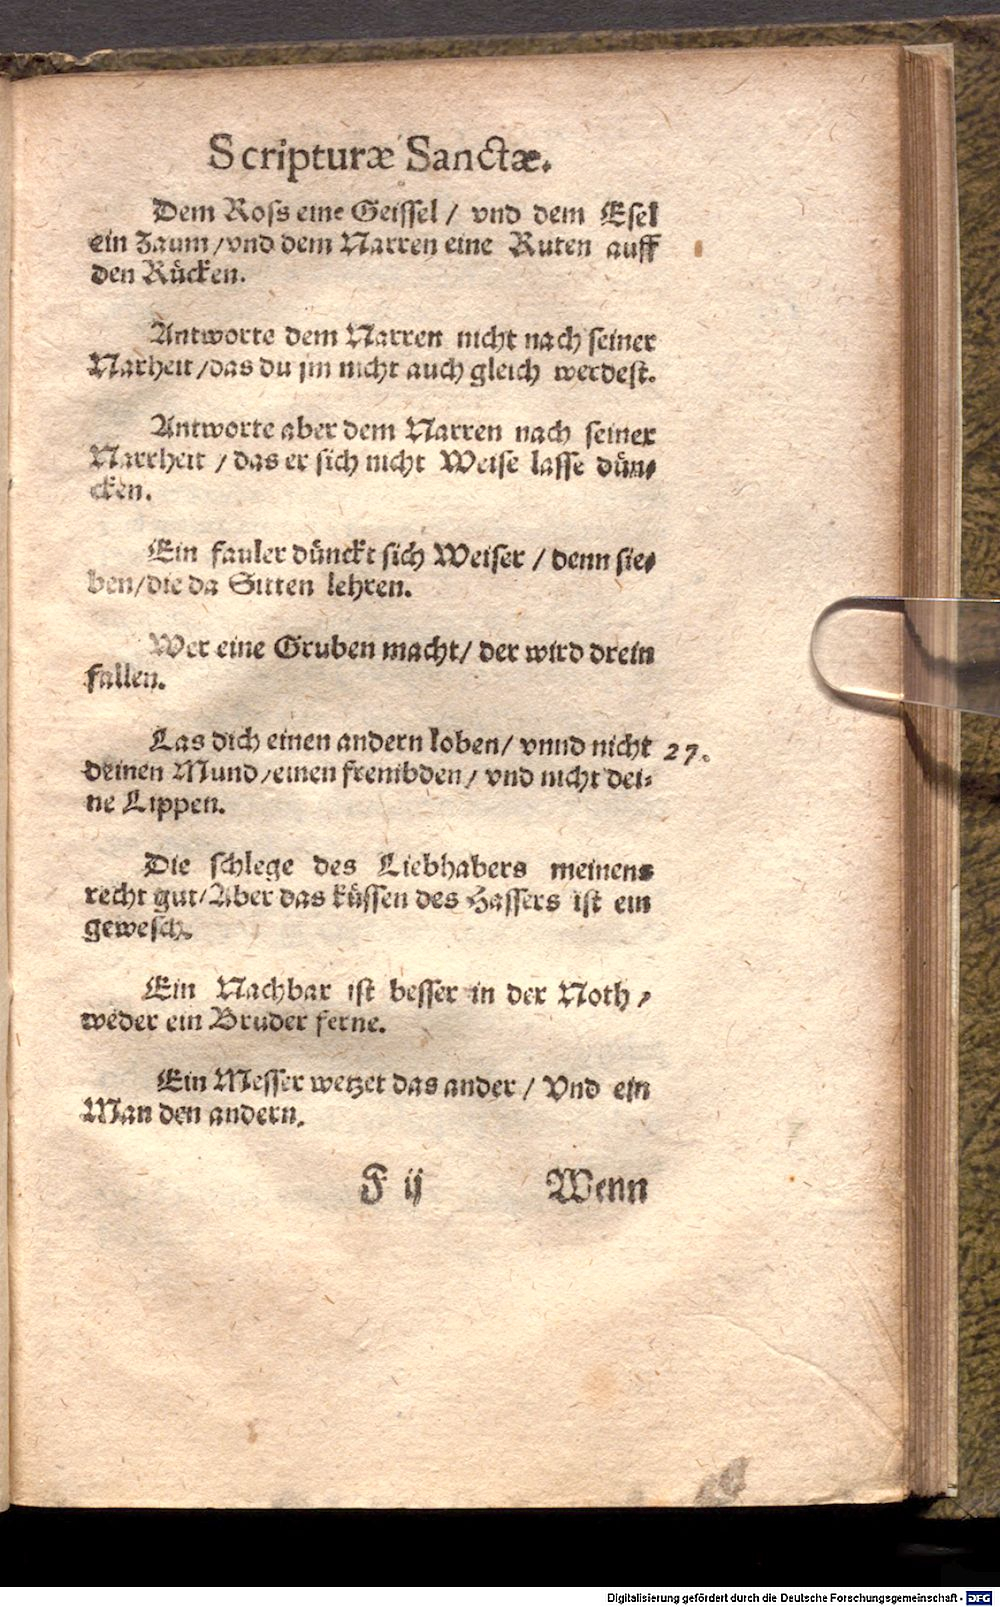 Scripturæ Sanctæ.
Dem Ross eine Geissel / vnd dem Esel
ein Zaum / vnd dem Narren eine Ruten auff
den Rücken.
Antworte dem Narren nicht nach seiner
Narheit / das du jm nicht auch gleich werdest.
Antworte aber dem Narren nach seiner
Narrheit / das er sich nicht Weise lasse dün-
cken.
Ein fauler dünckt sich Weiser / denn sie-
ben / die da Sitten lehren.
Wer eine Gruben macht / der wird drein
fallen.
Las dich einen andern loben / vnnd nicht 27.
deinen Mund / einen frembden / vnd nicht dei-
ne Lippen.
Die schlege des Liebhabers meinens
recht gut / Aber das küssen des Hassers ist ein
gewesch.
Ein Nachbar ist besser in der Noth /
weder ein Bruder ferne.
Ein Messer wetzet das ander / Vnd ein
Man den andern.
F ij Wenn
Digitalisierung gefördert durch die Deutsche Forschungsgemeinschaft - DFG